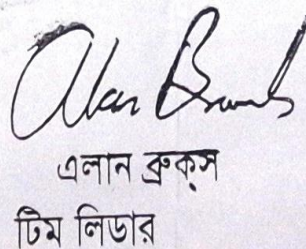 Alan Brooks
এলান ব্রুক্‌স
টিম লিডার